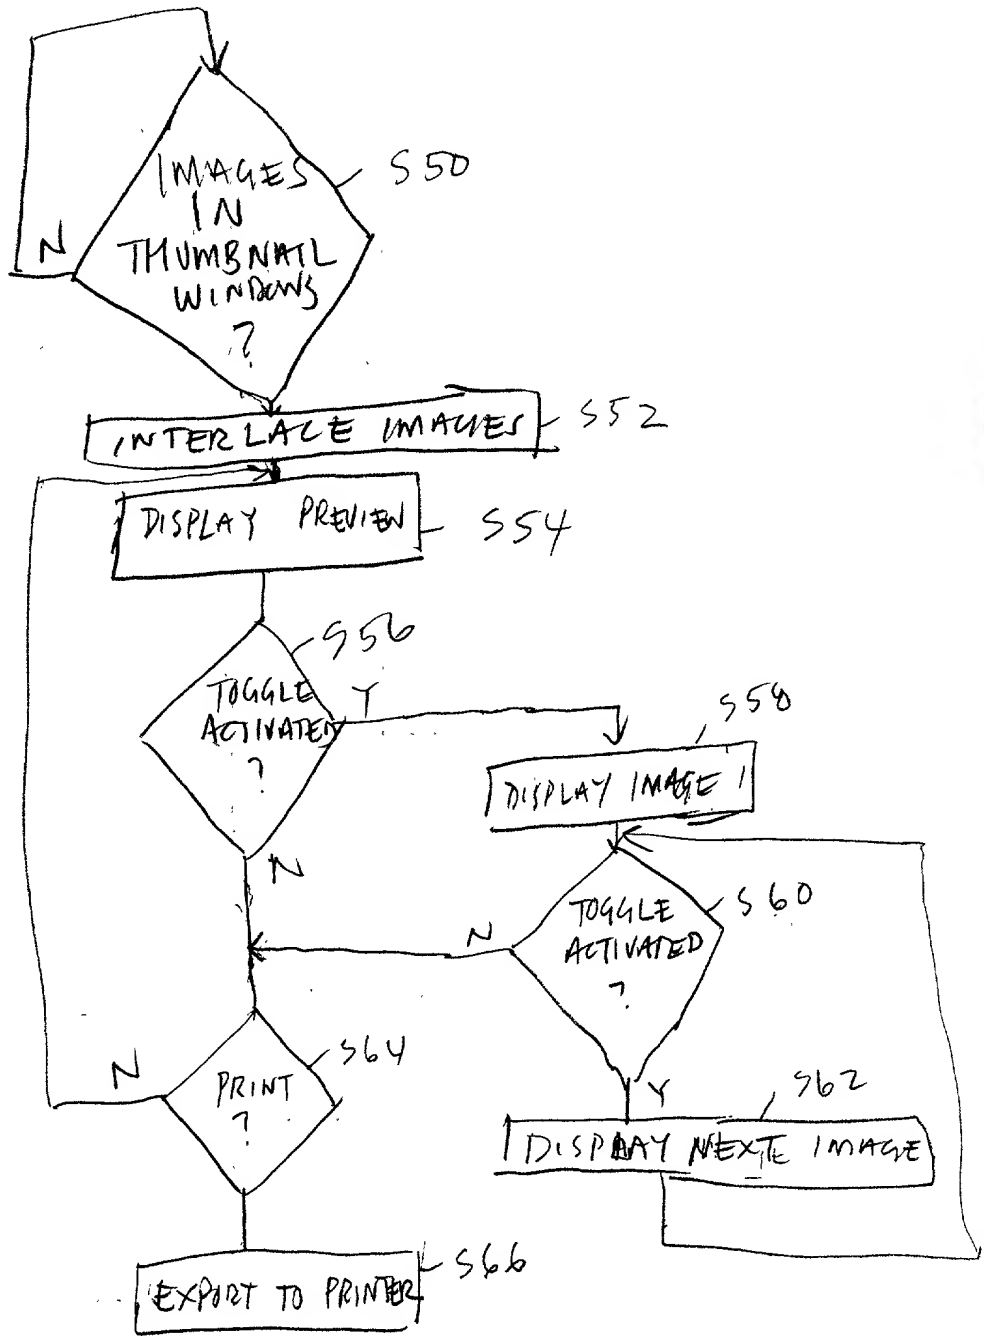 IMAGES
IN
THUMBNAIL
WINDOWS
?
S50
N
INTERLACE IMAGES
S52
DISPLAY PREVIEW
S54
S56
TOGGLE
ACTIVATED
?
Y
N
S58
DISPLAY IMAGE 1
TOGGLE
ACTIVATED
?
S60
N
Y
PRINT
?
S64
N
S62
DISPLAY NEXT IMAGE
EXPORT TO PRINTER
S66